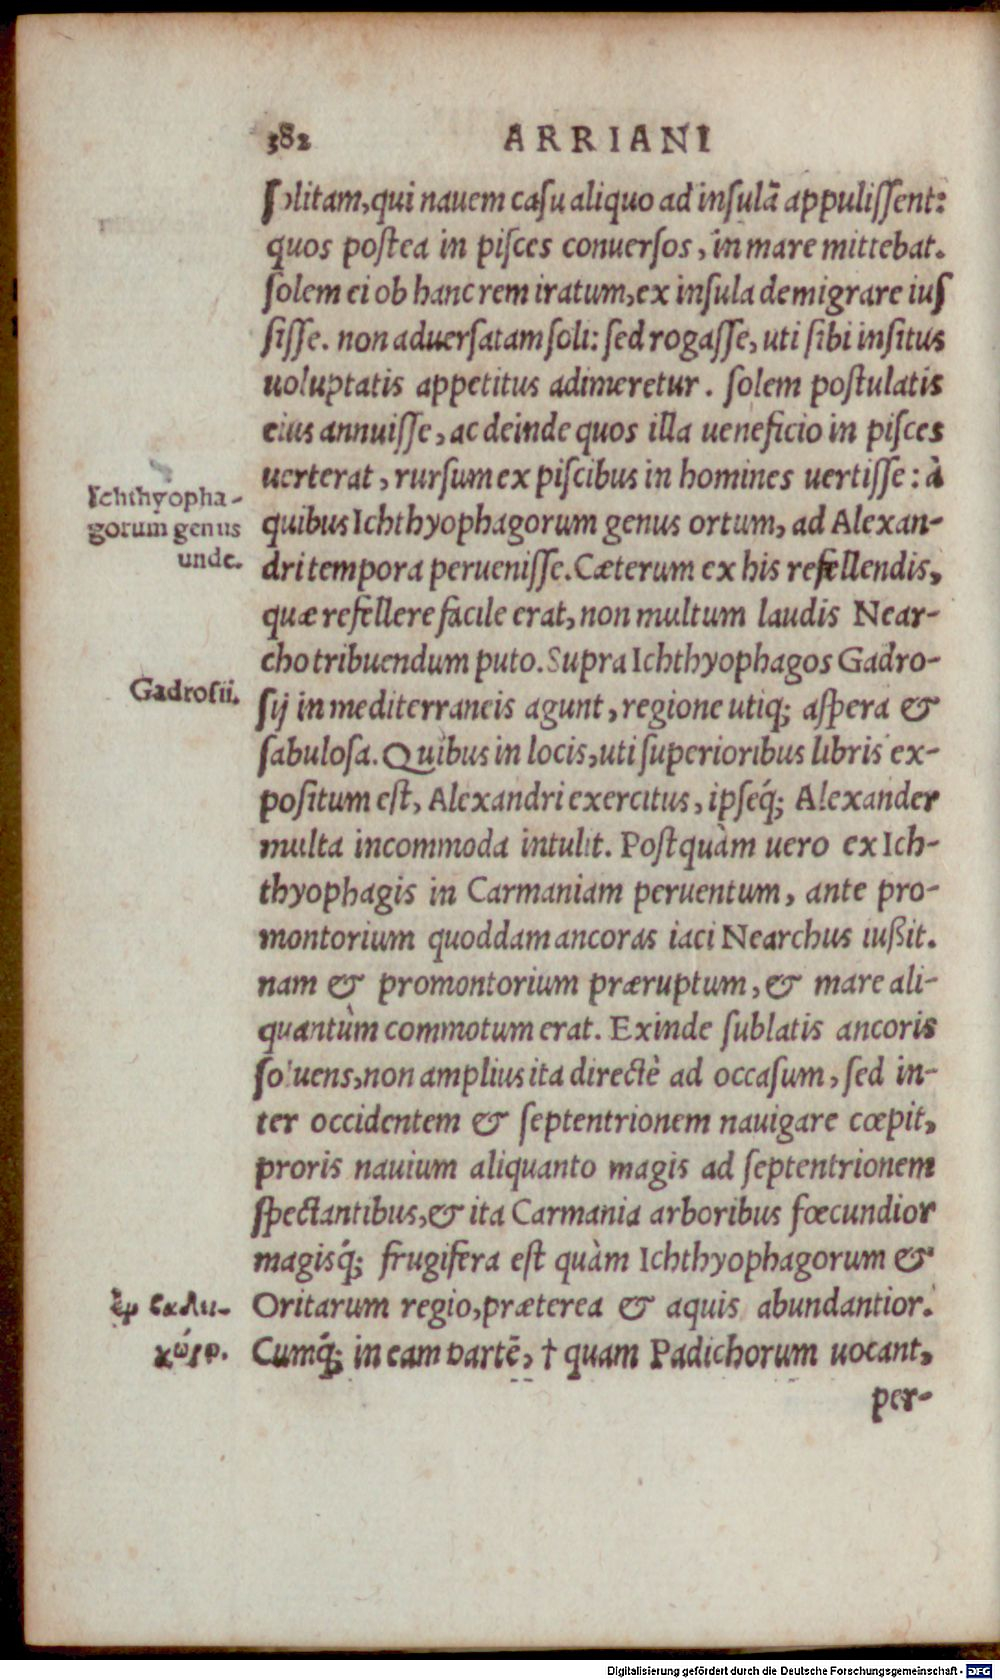 382 ARRIANI
ſolitam, qui nauem caſu aliquo ad inſulā appuliſſent:
quos poſtea in piſces conuerſos, in mare mittebat.
ſolem ei ob hanc rem iratum, ex inſula demigrare iuſ
ſiſſe. non aduerſatam ſoli: ſed rogaſſe, uti ſibi inſitus
uoluptatis appetitus adimeretur. ſolem poſtulatis
eius annuiſſe, ac deinde quos illa ueneficio in piſces
uerterat, rurſum ex piſcibus in homines uertiſſe: à
Ichthyopha-
gorum genus
unde.
quibus Ichthyophagorum genus ortum, ad Alexan-
dri tempora perueniſſe. Cæterum ex his refellendis,
quæ refellere facile erat, non multum laudis Near-
cho tribuendum puto. Supra Ichthyophagos Gadro-
Gadroſii.
ſij in mediterraneis agunt, regione utiq; aſpera &
ſabuloſa. Quibus in locis, uti ſuperioribus libris ex-
poſitum eſt, Alexandri exercitus, ipſeq́; Alexander
multa incommoda intulit. Poſtquàm uero ex Ich-
thyophagis in Carmaniam peruentum, ante pro-
montorium quoddam ancoras iaci Nearchus iußit.
nam & promontorium præruptum, & mare ali-
quantùm commotum erat. Exinde ſublatis ancoris
ſoluens, non amplius ita directè ad occaſum, ſed in-
ter occidentem & ſeptentrionem nauigare cœpit,
proris nauium aliquanto magis ad ſeptentrionem
ſpectantibus, & ita Carmania arboribus fœcundior
magisq́; frugifera eſt quàm Ichthyophagorum &
Oritarum regio, præterea & aquis abundantior.
Cumq́; in eam partē, † quam Padichorum uocant,
per-
Digitalisierung gefördert durch die Deutsche Forschungsgemeinschaft - DFG